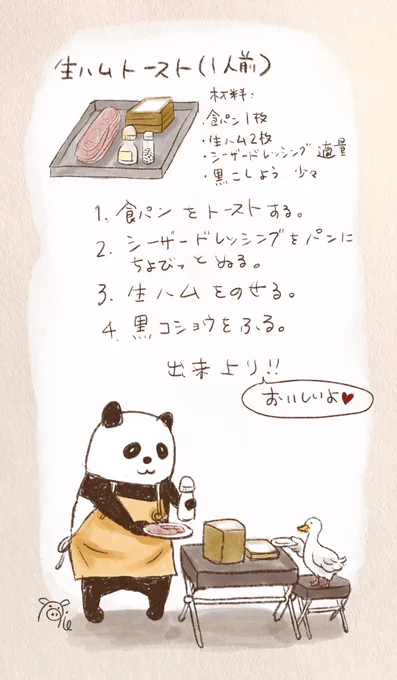 生ハムトースト(1人前)
材料:
・食パン1枚
・生ハム2枚
・シーザードレッシング 適量
・黒こしょう 少々
1. 食パンをトーストする。
2. シーザードレッシングをパンに
ちょびっとぬる。
3. 生ハムをのせる。
4. 黒コショウをふる。
出来上り!!
おいしいよ♥